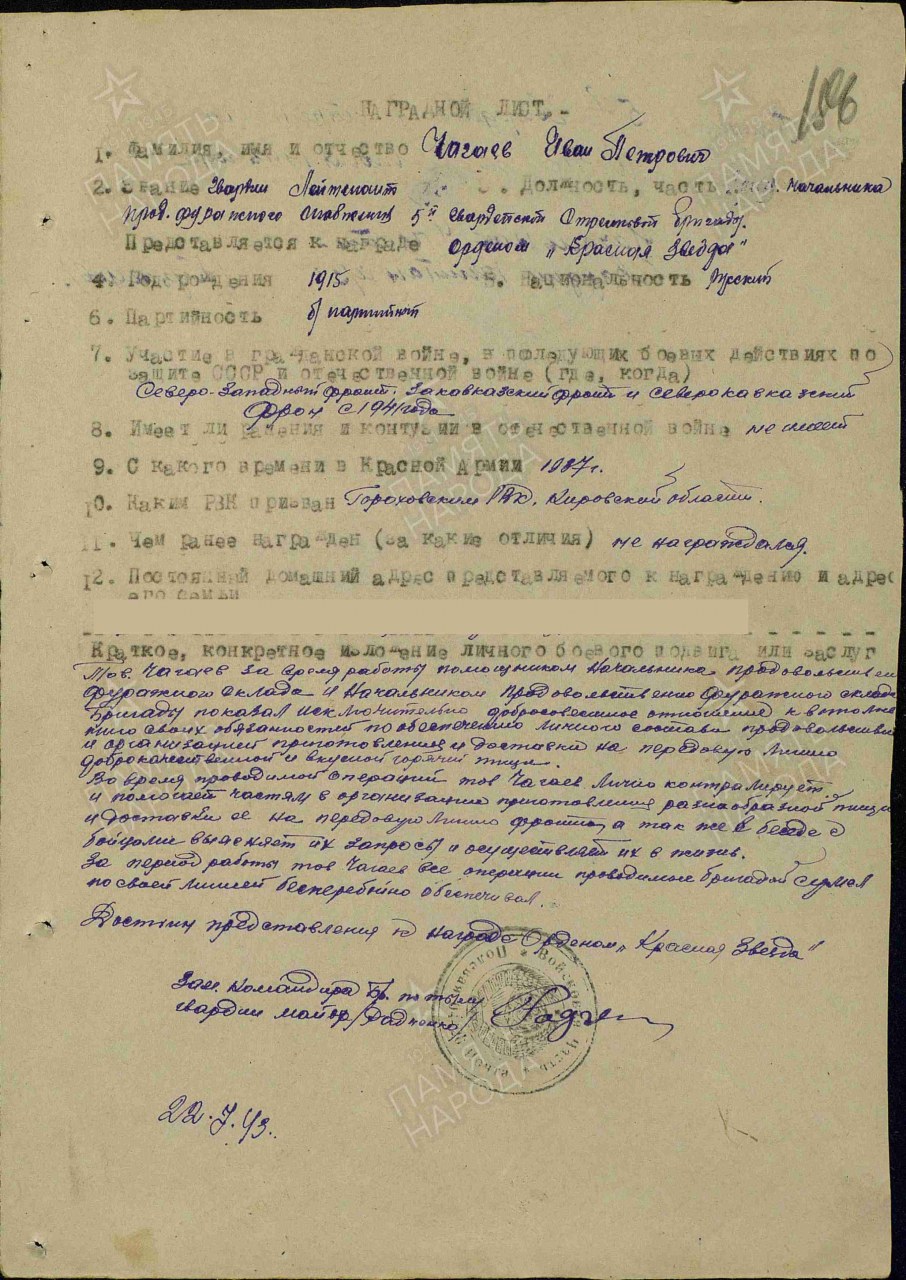 156
НАГРАДНОЙ ЛИСТ.-
1. Фамилия, имя и отчество Чагаев Иван Петрович
2. Звание Гвардии Лейтенант 3. Должность, часть начальника
прод. фуражного снабжения 5й Гвардейской Стрелковой бригады.
Представляется к награде орденом „Красная Звезда"
4. Год рождения 1915 5. Национальность Русский
6. Партийность б/партийный
7. Участие в гражданской войне, в последующих боевых действиях по
защите СССР и отечественной войне (где, когда)
Северо-Западный фронт, Закавказский фронт и Северокавказский
фрон с 1941 года
8. Имеет ли ранения и контузии в отечественной войне не имеет
9. С какого времени в Красной Армии 1937 г.
10. Каким РВК призван Гороховским РВК, Кировской области.
11. Чем ранее награжден (за какие отличия) не награждался.
12. Постоянный домашний адрес представляемого к награждению и адрес
его семьи
Краткое, конкретное изложение личного боевого подвига или заслуг
Тов. Чагаев за время работы помощником начальника продовольственно
фуражного склада и начальником продовольственно фуражного склада
бригады показал исключительно добросовестное отношение к выполне
нию своих обязанностей по обеспечению личного состава продовольствием
и организацией приготовления и доставки на передовую линию
доброкачественной и вкусной горячей пищи.
Во время проводимой операций тов Чагаев лично контролирует
и помогает частям в организации приготовления разнообразной пищи
и доставки ее на передовую линию фронта, а так же в беседе с
бойцами выясняет их запросы и осуществляет их в жизнь.
За период работы тов Чагаев все операции проводимые бригадой сумел
по своей линией бесперебойно обеспечивал.
Достоин представления к награде Орденом „Красная Звезда"
Зам. Командира Бр. по тылу
гвардии майор /Радченко/
Войсковая Часть Полевая Почта
22.7.43.
ПАМЯТЬ НАРОДА